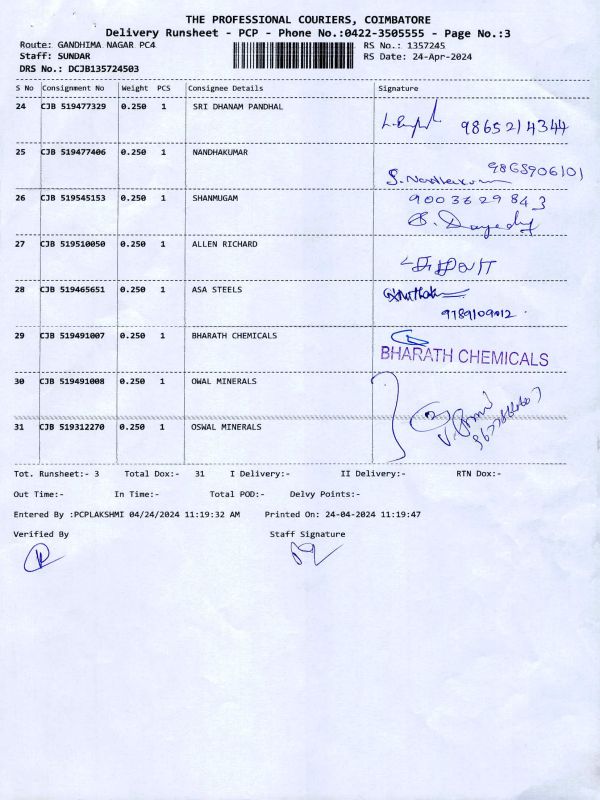 THE PROFESSIONAL COURIERS, COIMBATORE
Delivery Runsheet - PCP - Phone No.:0422-3505555 - Page No.:3
Route: GANDHIMA NAGAR PC4 RS No.: 1357245
Staff: SUNDAR RS Date: 24-Apr-2024
DRS No.: DCJB135724503
S No Consignment No Weight PCS Consignee Details Signature
24 CJB 519477329 0.250 1 SRI DHANAM PANDHAL
9865214344
25 CJB 519477406 0.250 1 NANDHAKUMAR
9865906101
S. Nandhakumar
26 CJB 519545153 0.250 1 SHANMUGAM
9003629843
27 CJB 519510050 0.250 1 ALLEN RICHARD
28 CJB 519465651 0.250 1 ASA STEELS
9789109012
29 CJB 519491007 0.250 1 BHARATH CHEMICALS
BHARATH CHEMICALS
30 CJB 519491008 0.250 1 OWAL MINERALS
31 CJB 519312270 0.250 1 OSWAL MINERALS
Tot. Runsheet:- 3 Total Dox:- 31 I Delivery:- II Delivery:- RTN Dox:-
Out Time:- In Time:- Total POD:- Delvy Points:-
Entered By :PCPLAKSHMI 04/24/2024 11:19:32 AM Printed On: 24-04-2024 11:19:47
Verified By Staff Signature